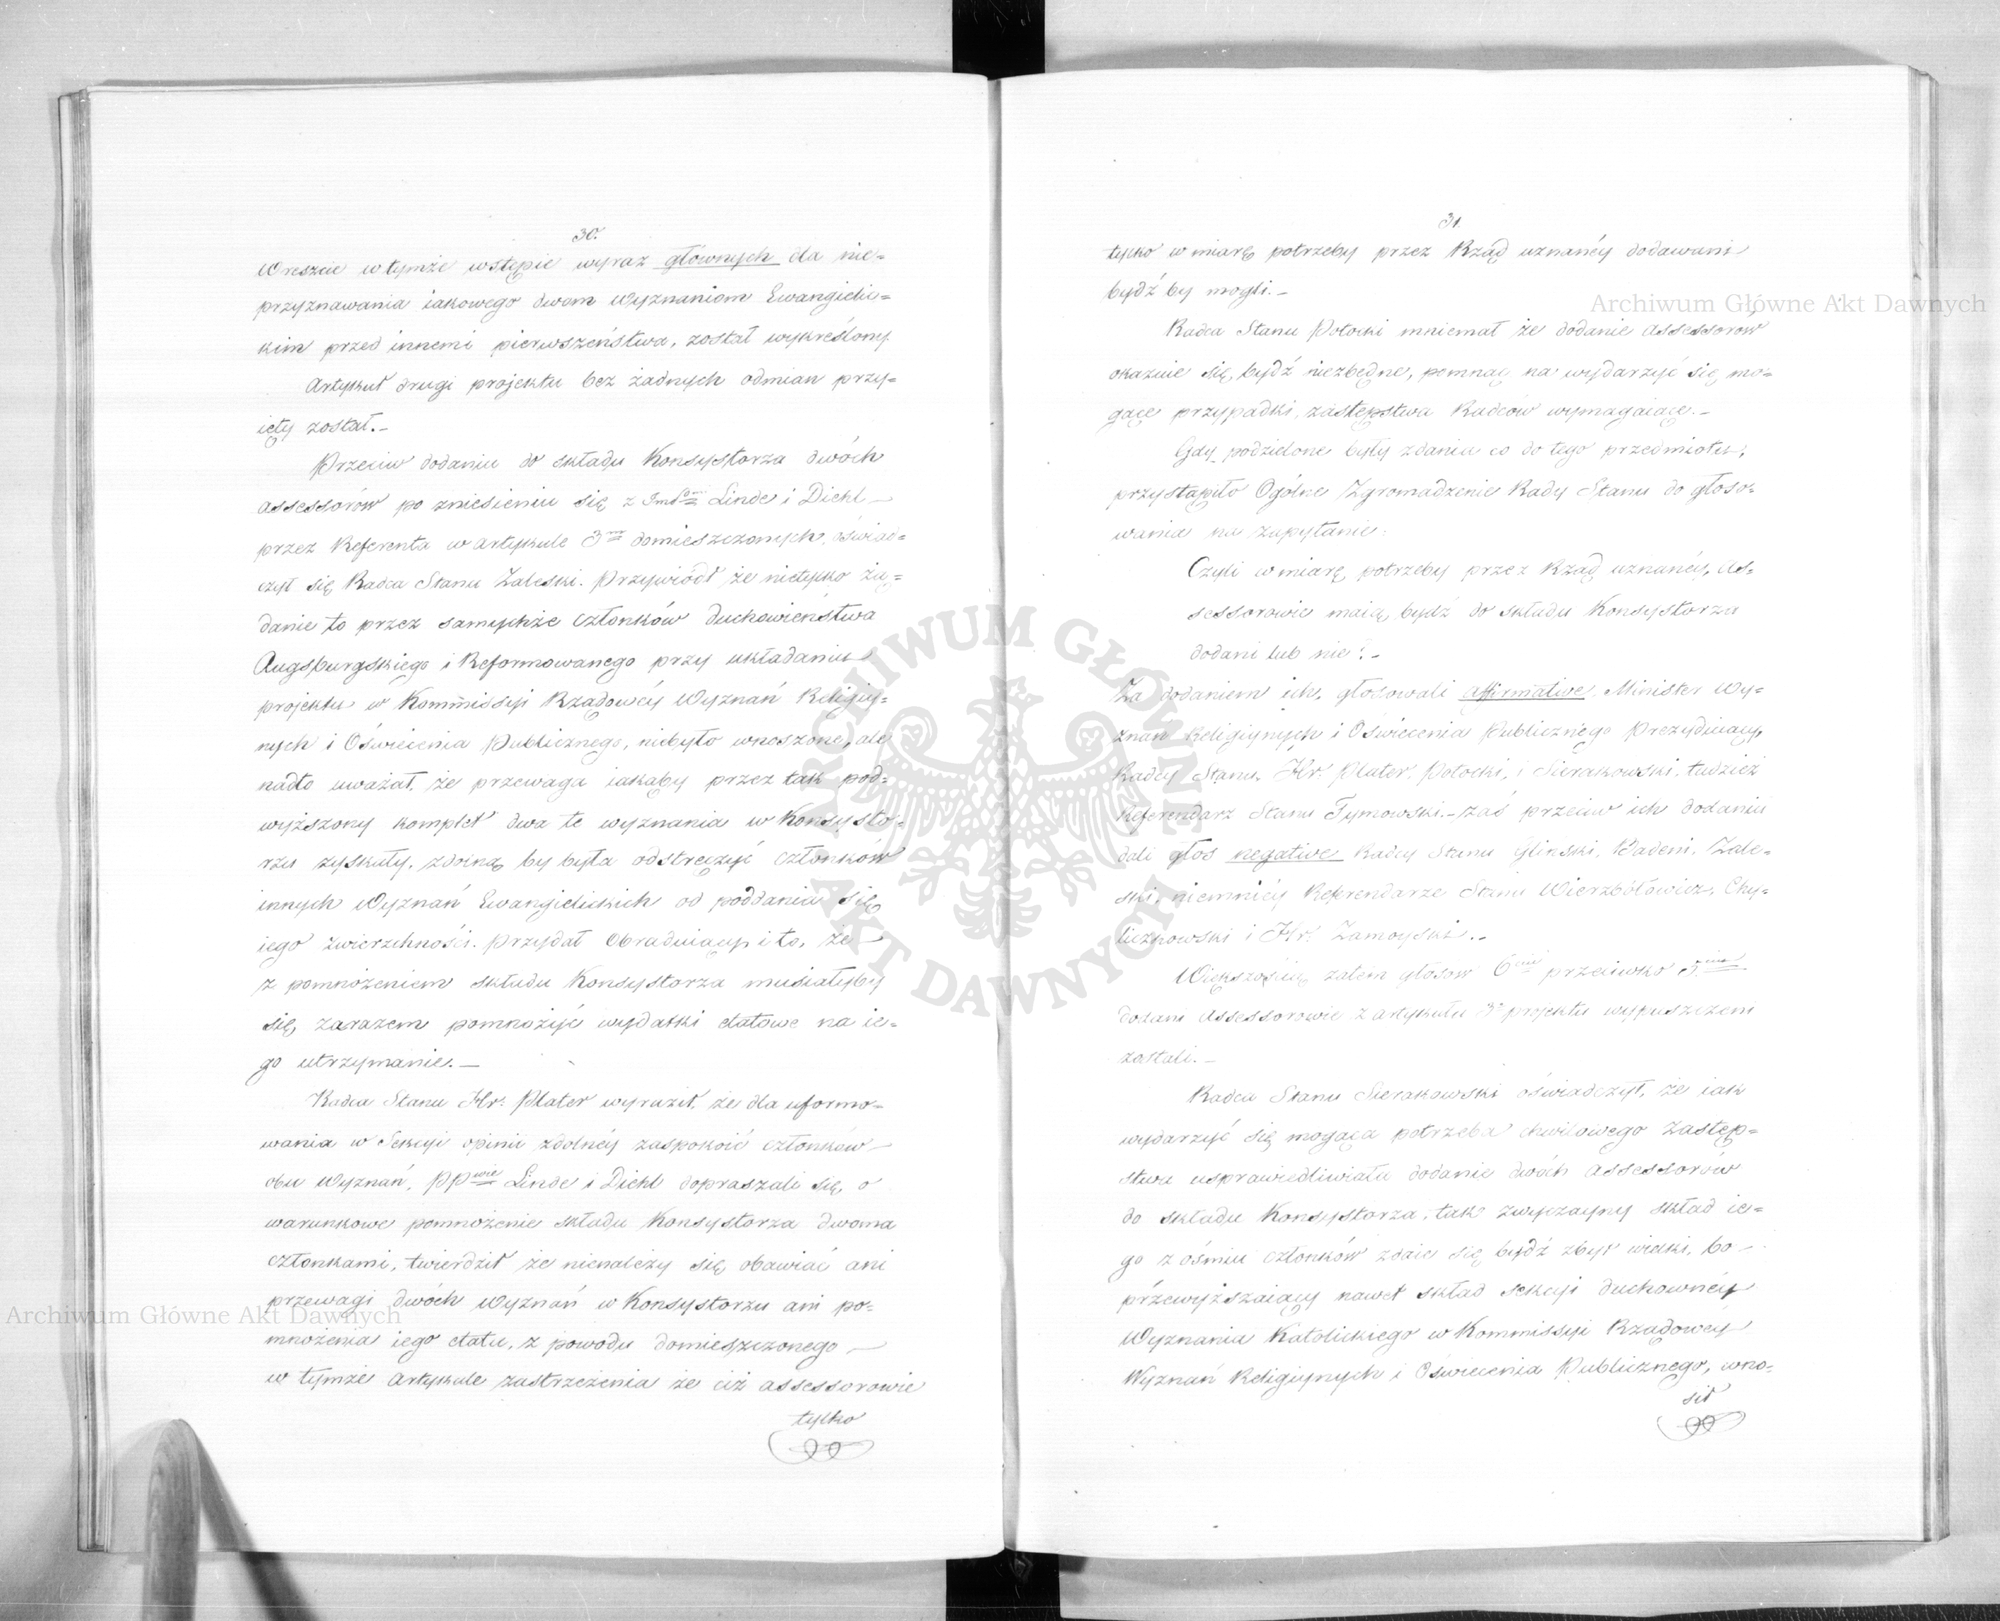 30.
Wreszcie w tymże wstępie wyraz głównych dla nie=
przyznawania iakowego dwom Wyznaniom Ewangielic=
kim przed innemi pierwszeństwa, został wykreślony.
Artykuł drugi projektu bez żadnych odmian przy=
ięty został.—
Przeciw dodaniu do składu Konsystorza dwóch
assessorów po zniesieniu się z Linde i Diehl
przez Referenta w artykule 3m domieszczonych, oświad=
czył się Radca Stanu Zaleski. Przywiódł, że nietylko żą=
danie to przez samychże członków duchowieństwa
Augsburgskiego i Reformowanego przy układaniu
projektu w Kommissyi Rządowéy Wyznań Religiy=
nych i Oświecenia Publicznego, niebyło wnoszone, ale
nadto uważał, że przewaga iakąby przez tak pod=
wyższony komplet dwa te wyznania w Konsysto=
rzu zyskały, zdolną by była odstręczyć członków
innych Wyznań Ewangielickich od poddania się
iego zwierzchności. Przydał Obraduiący i to, że
z pomnożeniem składu Konsystorza musiałyby
się zarazem pomnożyć wydatki etatowe na ie=
go utrzymanie.—
Radca Stanu Hr. Plater wyraził, że dla uformo=
wania w Sekcyi opinii zdolnéy zaspokoić członków
obu Wyznań, PPwie Linde i Diehl dopraszali się o
warunkowe pomnożenie składu Konsystorza dwoma
członkami, twierdził że nienależy się obawiać ani
przewagi dwóch Wyznań w Konsystorzu ani po=
mnożenia iego etatu, z powodu domieszczonego
w tymże Artykule zastrzeżenia że ciż assessorowie
tylko
31.
tylko w miarę potrzeby przez Rząd uznanéy dodawani
bydź by mogli.—
Radca Stanu Potocki mniemał że dodanie Assessorów
okazuie się bydź niezbędne, pomnąc na wydarzyć się mo=
gące przypadki, zastępstwa Radców wymagaiące.—
Gdy podzielone były zdania co do tego przedmiotu,
przystąpiło Ogólne Zgromadzenie Rady Stanu do głoso=
wania na zapytanie:
Czyli w miarę potrzeby przez Rząd uznanéy, As=
sessorowie maią bydź do składu Konsystorza
dodani lub nie?—
Za dodaniem ich, głosowali affirmative, Minister Wy=
znań Religiynych i Oświecenia Publicznego Prezyduiący,
Radcy Stanu, Hr. Plater, Potocki, i Sierakowski, tudzież
Referendarz Stanu Tymowski.— zaś przeciw ich dodaniu
dali głos negative Radcy Stanu Gliński, Badeni, Zale=
ski, niemniéy Referendarze Stanu Wierzbołowicz, Chy=
liczkowski i Hr. Zamoyski.—
Większością zatem głosów 6ciu przeciwko 5ciu
dodani Assessorowie z artykułu 3o projektu wypuszczeni
zostali.—
Radca Stanu Sierakowski oświadczył, że iak
wydarzyć się mogąca potrzeba chwilowego zastęp=
stwa usprawiedliwiała dodanie dwóch Assessorów
do składu Konsystorza, tak zwyczayny skład ie=
go z ośmiu członków zdaie się bydź zbyt wielki, bo
przewyższaiący nawet skład sekcyi duchownéy
Wyznania Katolickiego w Kommissyi Rządowey
Wyznań Religiynych i Oświecenia Publicznego, wno=
sił
Archiwum Główne Akt Dawnych
Archiwum Główne Akt Dawnych
ARCHIWUM GŁÓWNE
AKT DAWNYCH